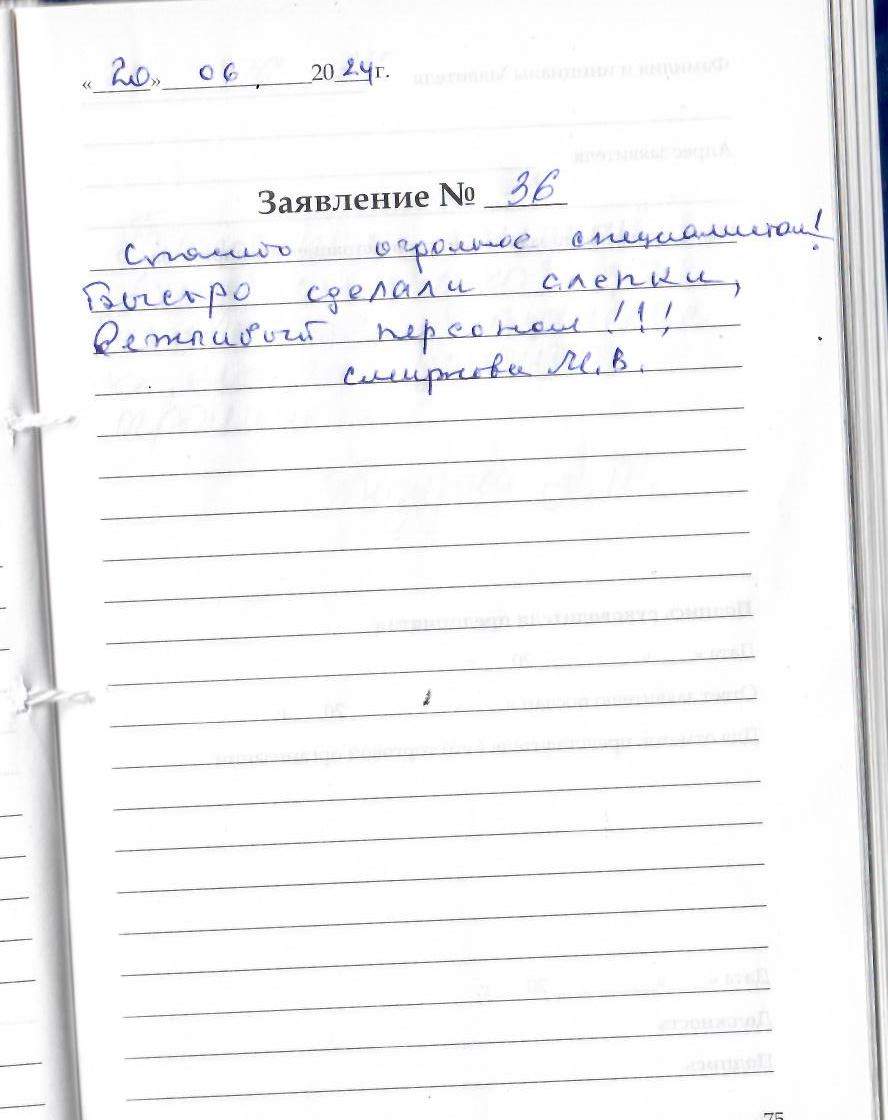 «20» 06 2024г.
Заявление № 36
Спасибо огромное специалистам!
Быстро сделали слепки,
Вежливый персонал!!!
Смирнова М.В.
75